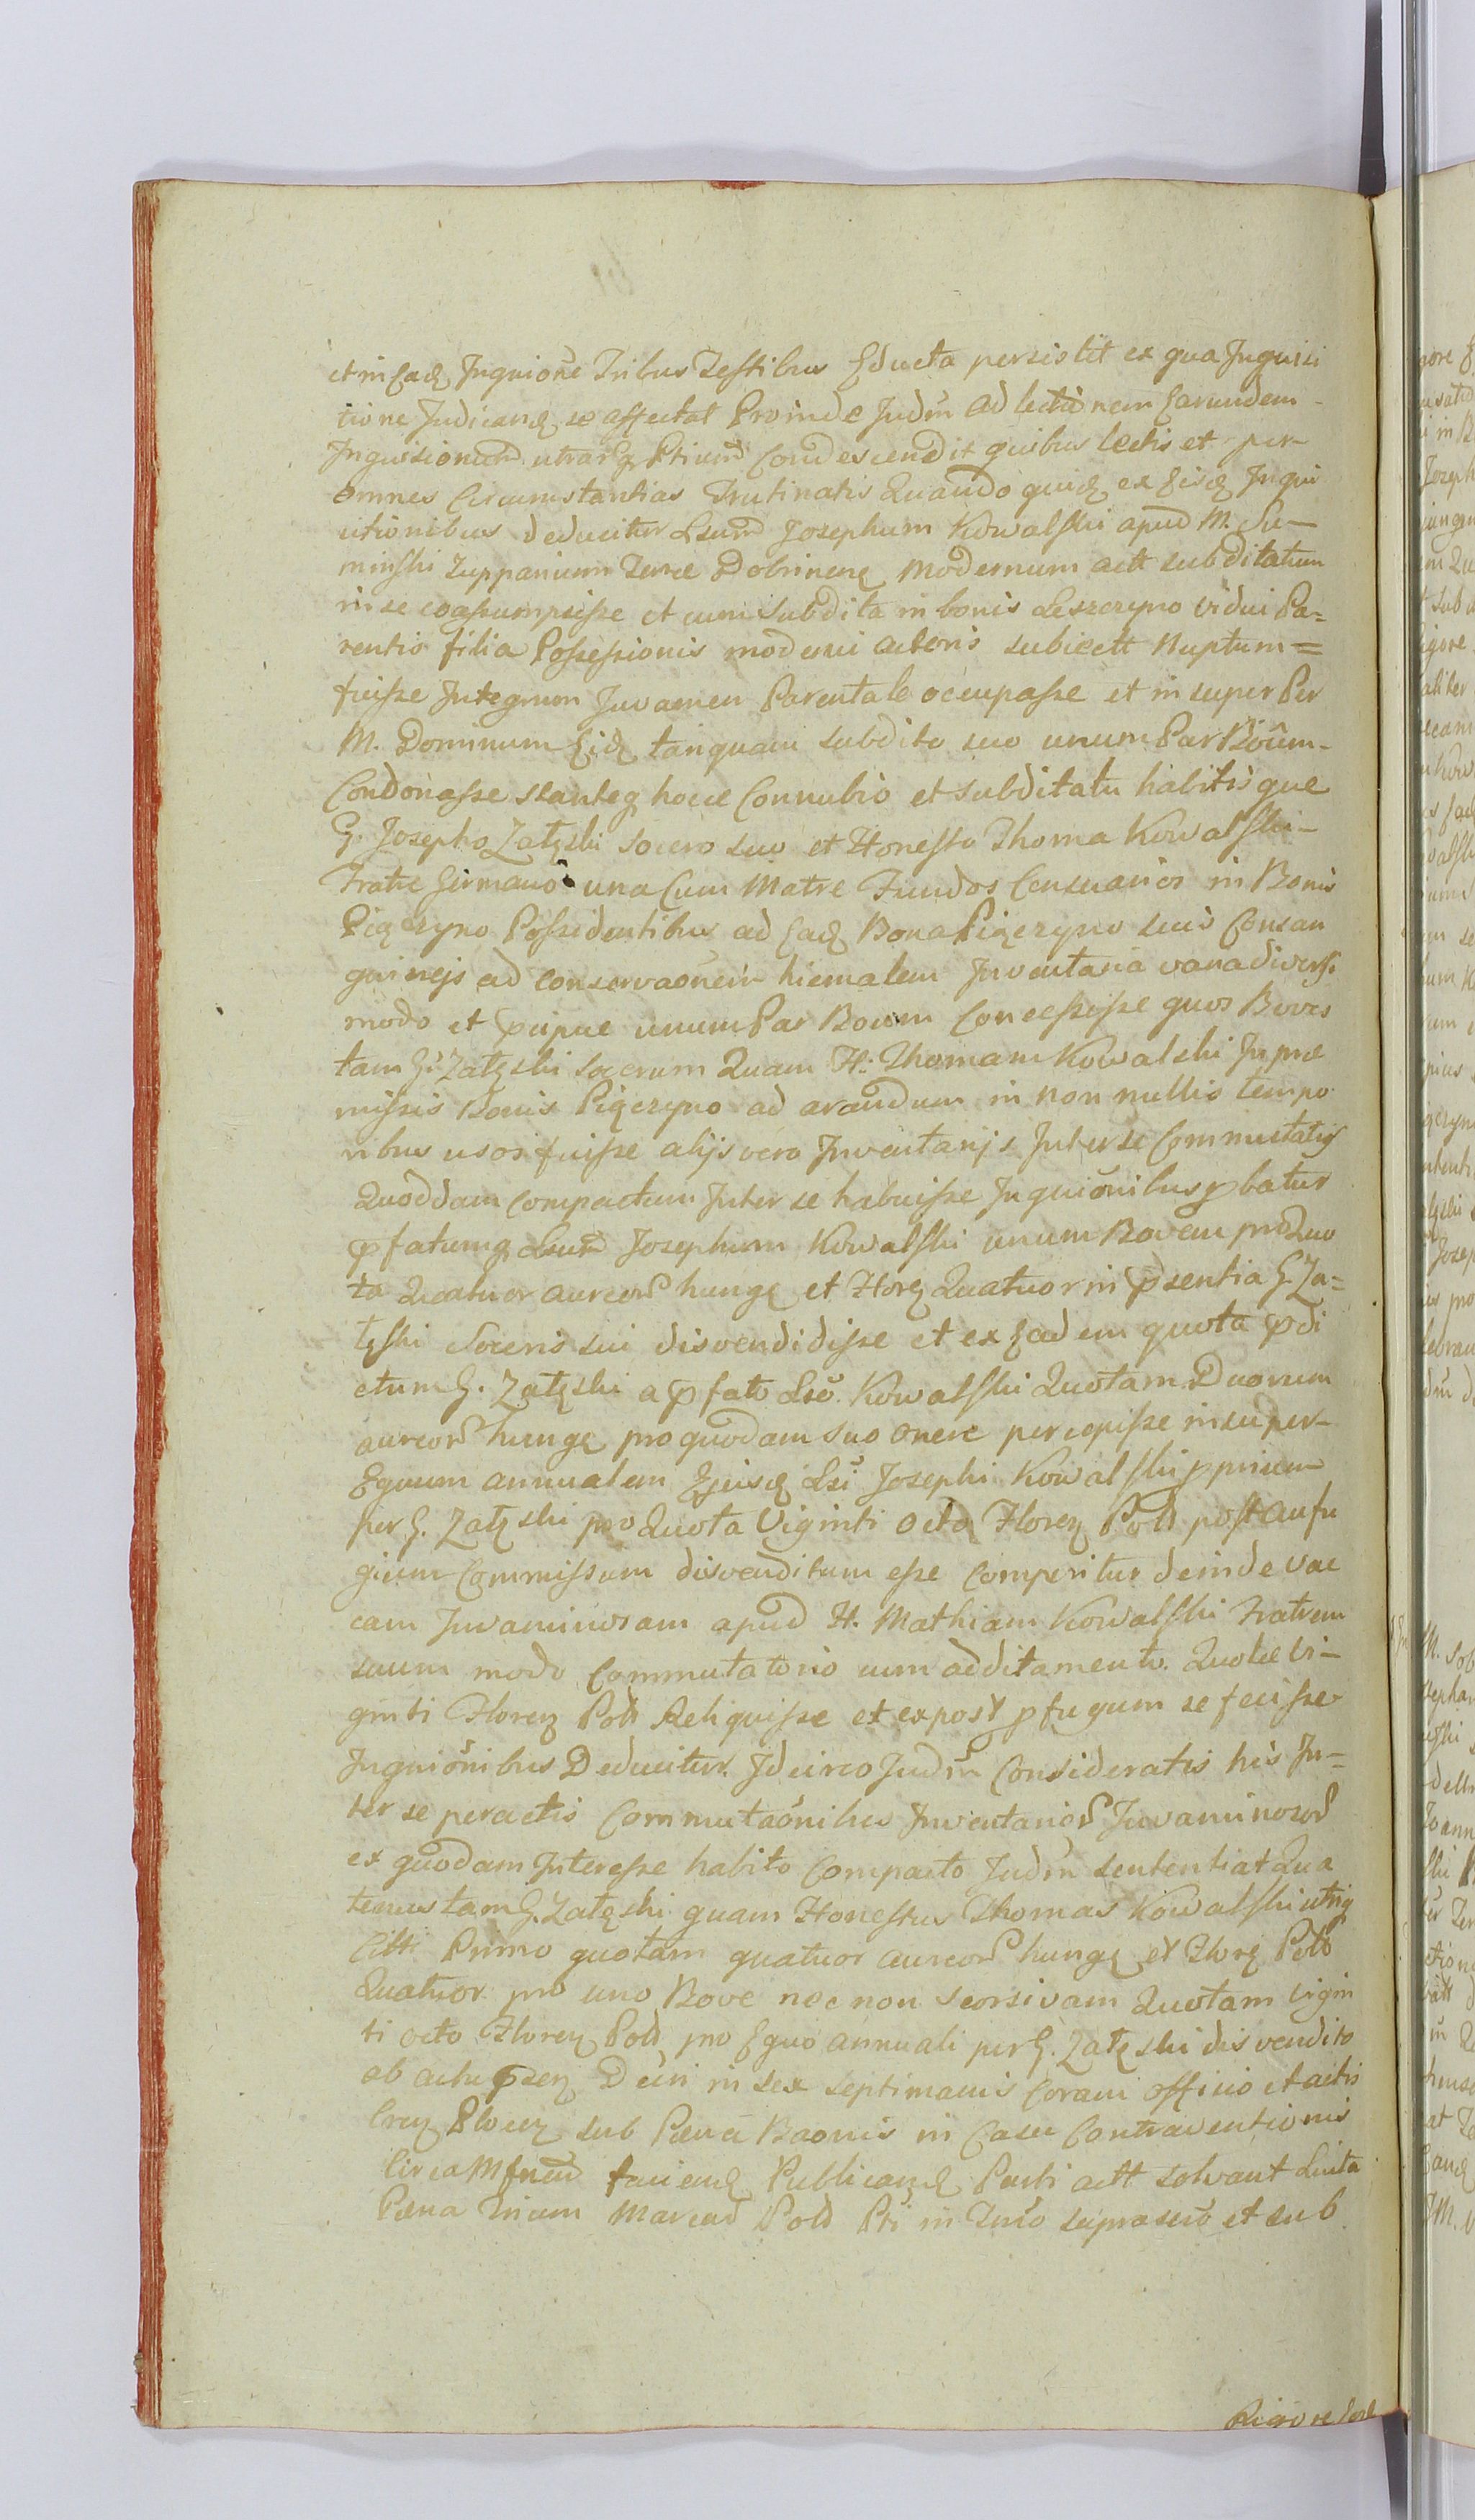 et in Eadꝫ Inquione Tribus Testibus Educta persistit ex qua Inquisi
tione Judicandꝫ se affectat Proinde Judm ad lectionem Earundem -
Inquisionum utrarꝫ Ptium Condescendit quibus lectis et per
omnes Circumstantias Trutinatis Quandoquidꝫ ex Eisdꝫ Inqui
sitionibus deducitur Lsum Josephum Kowalski apud M. Su-
minski Zuppanium Terræ Dobrinenꝫ Modernum actt subditatum
in se coassumpsisse et cum subdita in bonis Leszczyno vidui Pa=
rentis filia Possessionis moderni actoris subiectt Nuptum =
fuisse Integrum Juvamen Parentale occupasse et insuper Per
M. Dominum Eidꝫ tanquam subdito suo unum Par Boum -
Condonasse stanteqꝫ hocce Connubio et subditatu habitisque
G. Josepho Załęski socero suo et Honesto Thoma Kowalski -
Fratre Germano una Cum Matre Fundos Censuarios in Bonis
Pięczyno Possidentibus ad Eadꝫ Bona Pięczyno suis Consan
guineis ad conservaonem hiemalem Inventaria varia diversi
modo et p̄cipue unum Par Boum Concessisse quos Boves
tam G. Załęski socerum Quam H. Thomam Kowalski In præ
missis Bonis Pięczyno ad arandum in non nullis tempo
ribus usos fuisse alijs vero Inventarijs Inter se Commutatis
Quoddam compactum Inter se habuisse Inquionibus pbatur
p̄fatumqꝫ Lsum Josephum Kowalski unum Bovem pro Quo
ta Quatuor aureor hungꝫ et Florꝫ Quatuor in p̄sentia G. Za=
łęski Soceris sui disvendidisse et ex Eadem quota p̄di
ctum G. Załęski a p̄fato Lso. Kowalski Quotam Duorum
aureor hungꝫ pro quodam suo onere percepisse insuper -
Equum annualem Ejusdꝫ Lsi Josephi Kowalski pprium
per G. Załęski pro Quota Viginti Octo Florenꝫ Poll post aufu
gium Commissum disvenditum esse Comperitur deinde vac
cam Juvaminosam apud H. Mathiam Kowalski Fratrem
suum modo Commutatorio cum additamento. Quotæ Vi-
ginti Florenꝫ Poll Reliquisse et expost pfugum se fecisse
Inquionibus Deducitur. Idcirco Judm Consideratis his In=
ter se peractis Commutaonibus Inventarior Juvaminosor
ex quodam Interesse habito Compacto Judm sententiat Qua
tenus tam G. Załęski quam Honestus Thomas Kowalski utriqꝫ
Citti Primo quotam quatuor aureor hungꝫ et Florꝫ Poll
Quatuor pro uno Bove nec non seorsivam Quotam Vigin
ti octo Florenꝫ Poll pro Equo annuali per G. Załęski disvendito
ab actu p̄senꝫ Decti in sex septimanis Coram officio et actis
Crenꝫ Plocenꝫ sub Pæna Baonis in Casu Contraventionis
Circa Mfneum faciendꝫ Publicandꝫ Parti actt solvant Luita
Pæna Trium Marcar Poll Pti in Tmo suprascrō et sub
Rigore